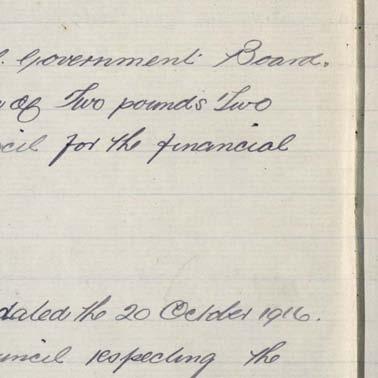 . Government Board.
of Two pounds Two
cil for the financial
dated the 20 October 1916.
uncil respecting the